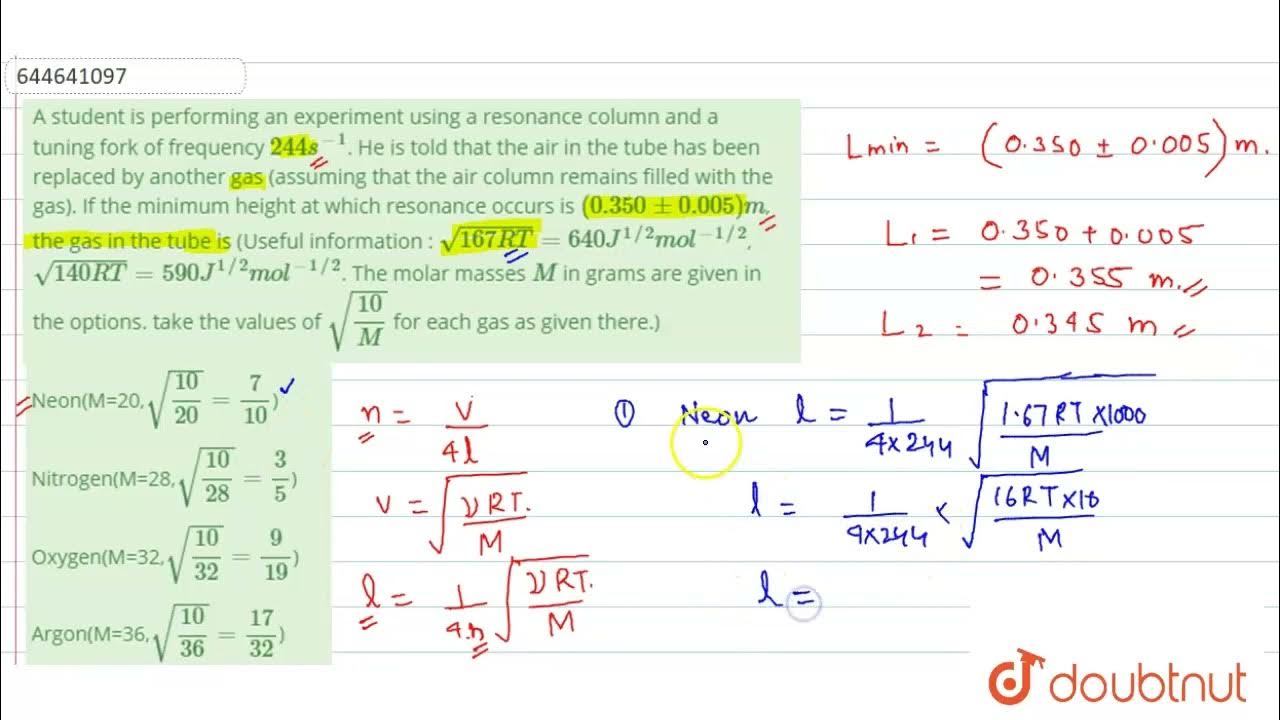 644641097
A student is performing an experiment using a resonance column and a
tuning fork of frequency 244s⁻¹. He is told that the air in the tube has been
replaced by another gas (assuming that the air column remains filled with the
gas). If the minimum height at which resonance occurs is (0.350 ± 0.005)m,
the gas in the tube is (Useful information : √167RT = 640J^{1/2}mol^{-1/2},
√140RT = 590J^{1/2}mol^{-1/2}. The molar masses M in grams are given in
the options. take the values of √(10/M) for each gas as given there.)
Neon(M=20,√(10/20) = 7/10)
Nitrogen(M=28,√(10/28) = 3/5)
Oxygen(M=32,√(10/32) = 9/19)
Argon(M=36,√(10/36) = 17/32)
Lmin = (0.350 ± 0.005) m.
L1 = 0.350 + 0.005
= 0.355 m.
L2 = 0.345 m
n = v/4l
v = √(γRT./M)
l = 1/4n √(γRT./M)
① Neon l = 1/(4×244) √(1.67RT×1000/M)
l = 1/(4×244) × √(16RT×10/M)
l =
doubtnut